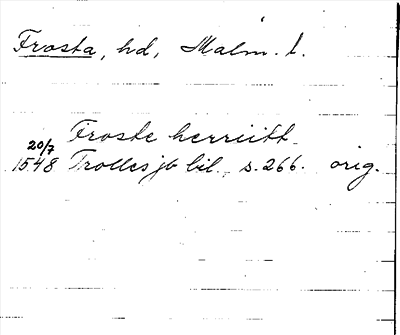 Frosta, hd, Malm. l.
Froste herriitt
20/7
1548 Trolles jb bil. s. 266. orig.